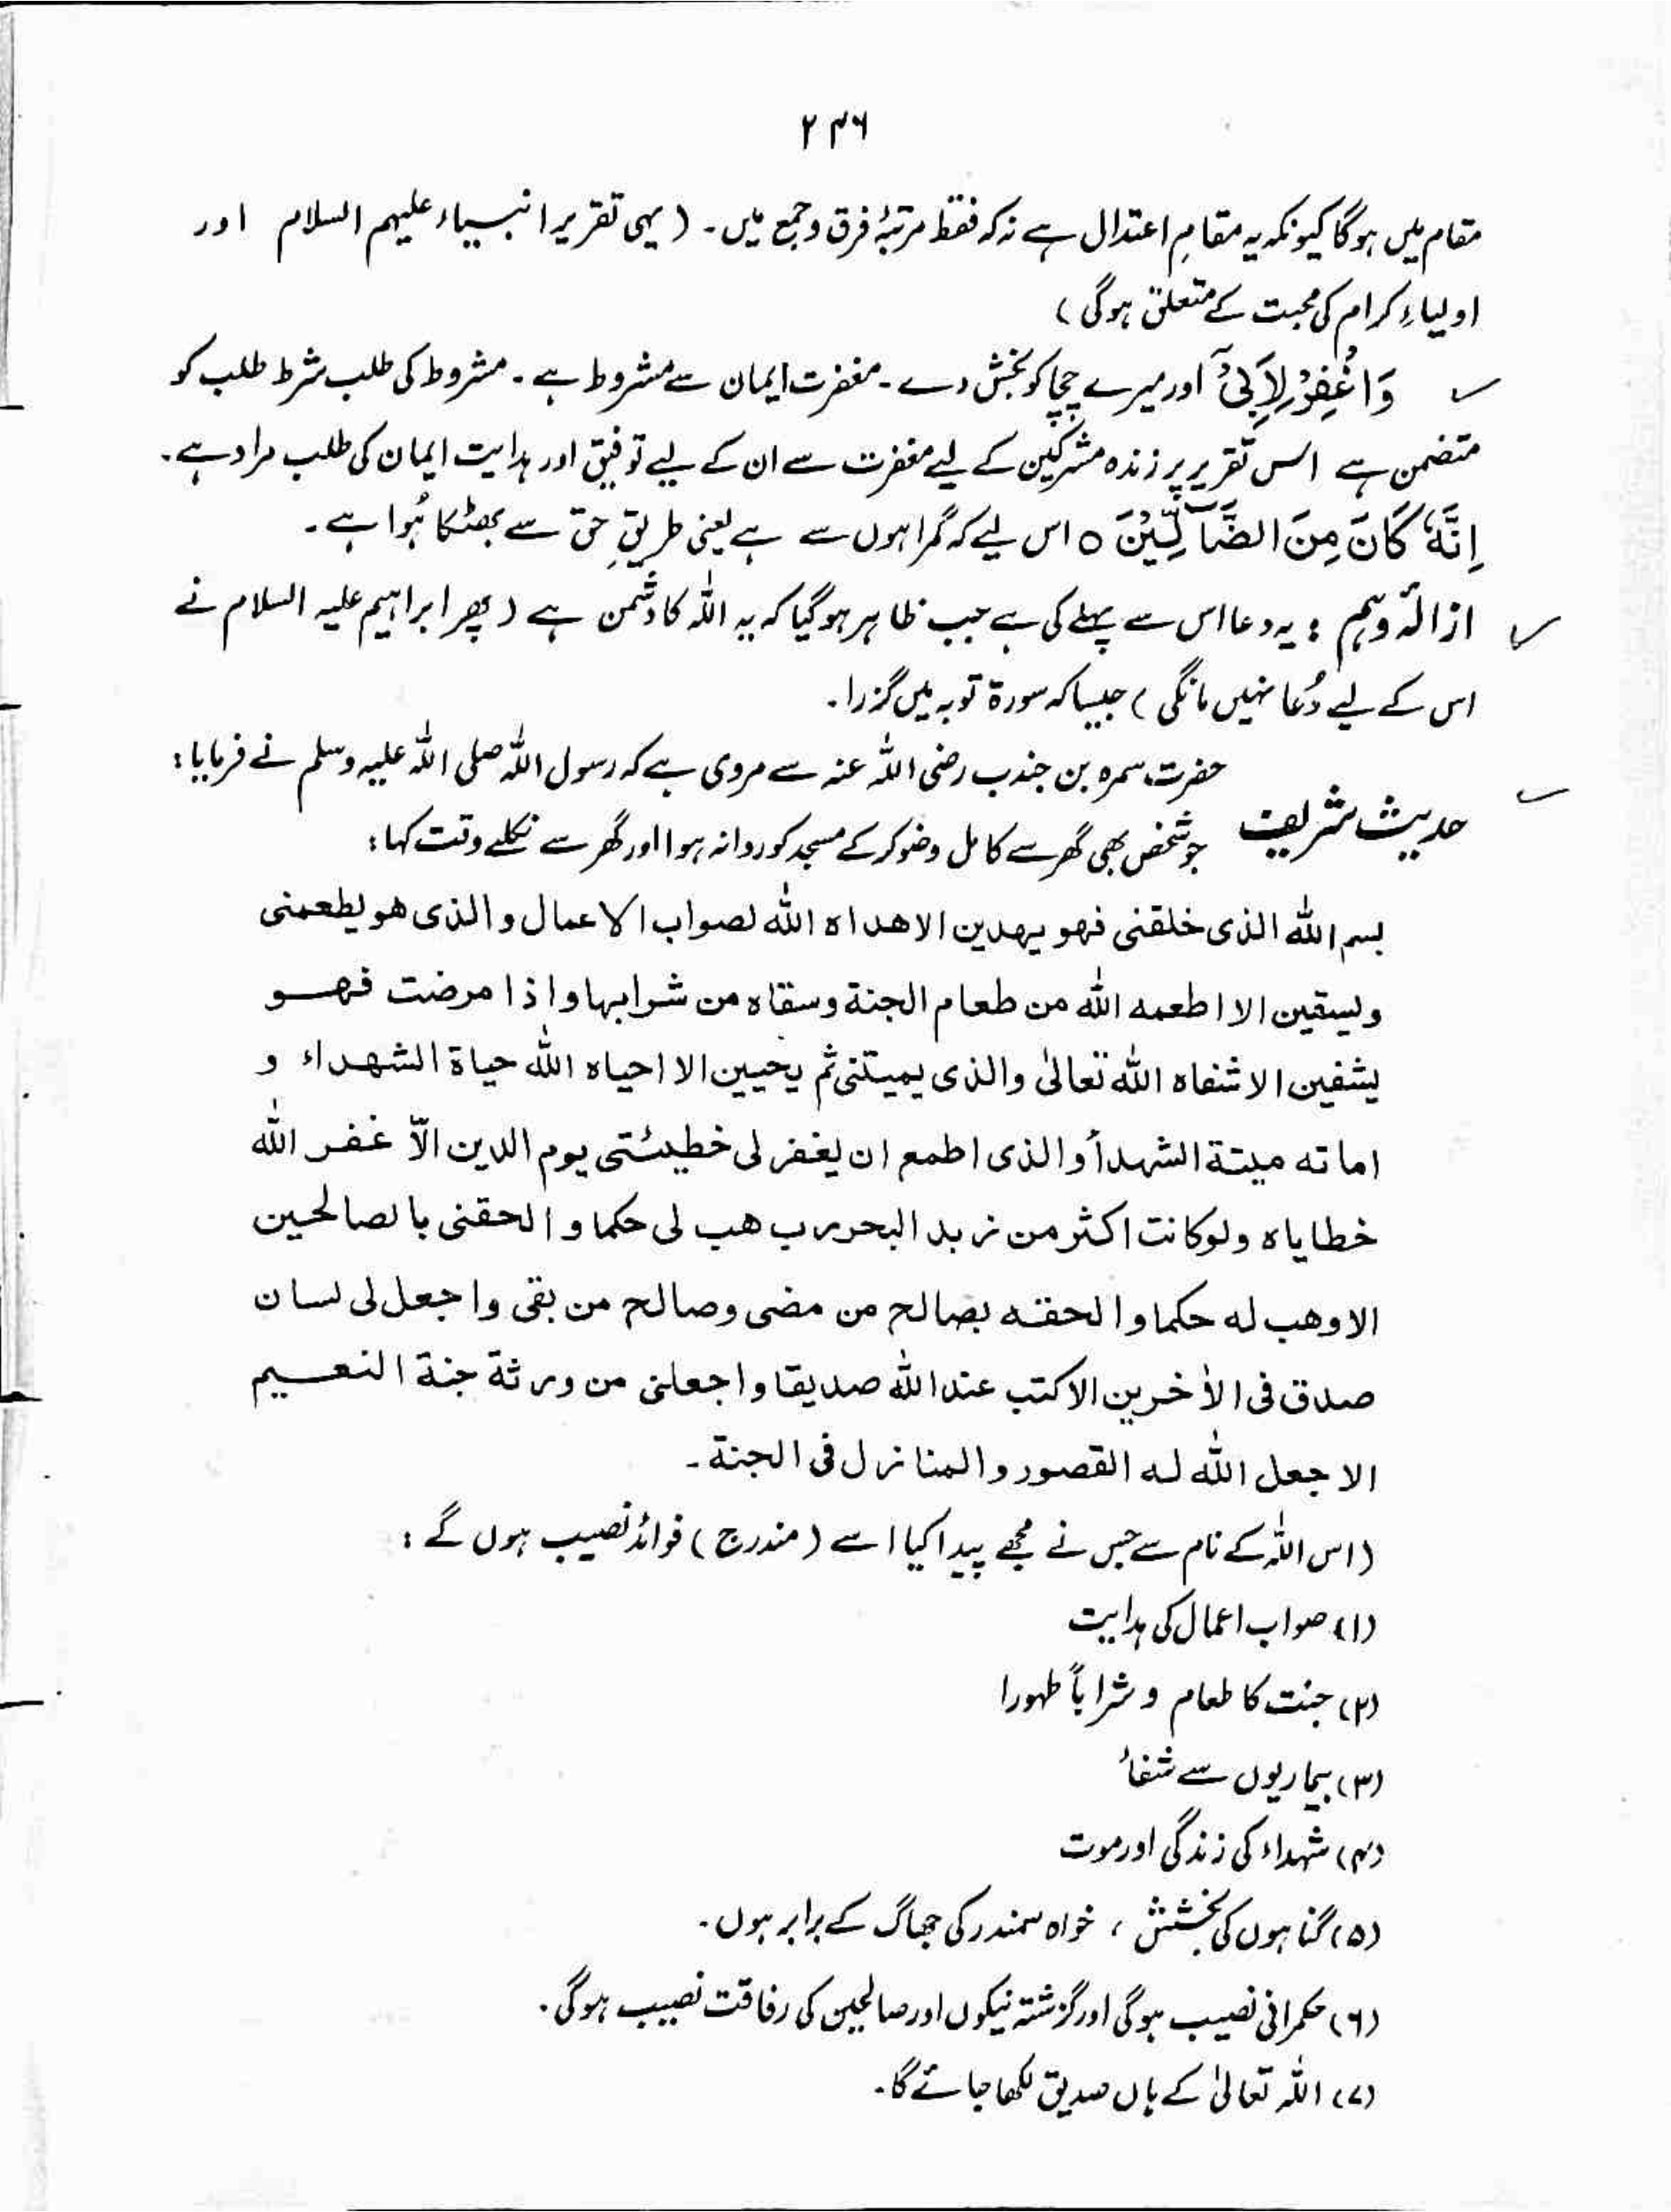 ۲۴۶
مقام میں ہوگا کیونکہ یہ مقامِ اعتدال ہے نہ کہ فقط مرتبۂ فرق و جمع میں۔ (یہی تقریر انبیاء علیہم السلام اور
اولیاءِ کرام کی محبت کے متعلق ہوگی)
وَاغْفِرْ لِاَبِیْٓ اور میرے چچا کو بخش دے۔ مغفرت ایمان سے مشروط ہے۔ مشروط کی طلب شرط طلب کو
متضمن ہے اس تقریر پر زندہ مشرکین کے لیے مغفرت سے ان کے لیے توفیق اور ہدایت ایمان کی طلب مراد ہے۔
اِنَّہٗ کَانَ مِنَ الضَّآلِّیْنَ ○ اس لیے کہ گمراہوں سے ہے یعنی طریقِ حق سے بھٹکا ہُوا ہے۔
ازالۂ وہم : یہ دعا اس سے پہلے کی ہے جب ظاہر ہوگیا کہ یہ اللہ کا دشمن ہے (پھر ابراہیم علیہ السلام نے
اس کے لیے دُعا نہیں مانگی) جیسا کہ سورۃ توبہ میں گزرا۔
حدیث شریف حضرت سمرہ بن جندب رضی اللہ عنہ سے مروی ہے کہ رسول اللہ صلی اللہ علیہ وسلم نے فرمایا:
جو شخص بھی گھر سے کامل وضو کر کے مسجد کو روانہ ہوا اور گھر سے نکلتے وقت کہا:
بسم اللہ الذی خلقنی فھو یھدین الا ھداہ اللہ لصواب الاعمال والذی ھو یطعمنی
ویسقین الا اطعمہ اللہ من طعام الجنۃ وسقاہ من شرابہا واذا مرضت فھو
یشفین الا شفاہ اللہ تعالیٰ والذی یمیتنی ثم یحیین الا احیاہ اللہ حیاۃ الشھداء و
اماتہ میتۃ الشہدأ والذی اطمع ان یغفر لی خطیئتی یوم الدین الّا غفر اللہ
خطایاہ ولوکانت اکثر من زبد البحر رب ھب لی حکما والحقنی بالصالحین
الا وھب لہ حکما والحقہ بصالح من مضی وصالح من بقی واجعل لی لسان
صدق فی الاٰخرین الا کتب عند اللہ صدیقا واجعلنی من ورثۃ جنۃ النعیم
الا جعل اللہ لہ القصور والمنازل فی الجنۃ۔
(اس اللہ کے نام سے جس نے مجھے پیدا کیا اسے (مندرج) فوائد نصیب ہوں گے :
(۱) صواب اعمال کی ہدایت
(۲) جنت کا طعام و شراباً طہورا
(۳) بیماریوں سے شفاء
(۴) شہداء کی زندگی اور موت
(۵) گناہوں کی بخشش ، خواہ سمندر کی جھاگ کے برابر ہوں۔
(۶) حکمرانی نصیب ہوگی اور گزشتہ نیکوں اور صالحین کی رفاقت نصیب ہوگی۔
(۷) اللہ تعالیٰ کے ہاں صدیق لکھا جائے گا۔